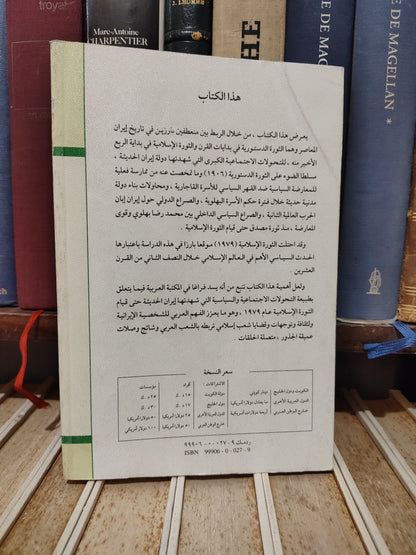 troyat
Marc-Antoine
CHARPENTIER
DE MAGELLAN
DE MAGELLAN
هذا الكتاب
يعرض هذا الكتاب ، من خلال الربط بين منعطفين بارزين في تاريخ إيران
المعاصر وهما الثورة الدستورية في بداية القرن والثورة الإسلامية في بداية الربع
الأخير منه ، للتحولات الاجتماعية الكبرى التي شهدتها دولة إيران الحديثة ،
مسلطا الضوء على الثورة الدستورية (١٩٠٦) وما تمخضت عنه من ممارسة فعلية
للمعارضة السياسية ضد القهر السياسي للأسرة القاجارية ، ومحاولات بناء دولة
مدنية حديثة خلال فترة حكم الأسرة البهلوية ، والصراع الدولي حول إيران إبان
الحرب العالمية الثانية ، والصراع السياسي الداخلي بين محمد رضا بهلوي وقوى
المعارضة ، منذ ثورة مصدق حتى قيام الثورة الإسلامية .
وقد احتلت الثورة الإسلامية (١٩٧٩) موقعا بارزا في هذه الدراسة باعتبارها
الحدث السياسي الأهم في العالم الإسلامي خلال النصف الثاني من القرن
العشرين .
ولعل أهمية هذا الكتاب تنبع من أنه يسد فراغا في المكتبة العربية فيما يتعلق
بطبيعة التحولات الاجتماعية والسياسية التي شهدتها إيران الحديثة حتى قيام
الثورة الإسلامية عام ١٩٧٩ ، وهو ما يعزز الفهم العربي للشخصية الإيرانية
ولثقافة وتوجهات وقضايا شعب إسلامي تربطه بالشعب العربي وشائج وصلات
عميقة الجذور ، متصلة الحلقات .
سعر النسخة
الكويت ودول الخليج دينار كويتي
الدول العربية الأخرى ما يعادل دولارا أمريكيا
خارج الوطن العربي أربعة دولارات أمريكية
الاشتراكات : أفراد مؤسسات
دولة الكويت ١٥ د. ك ٢٥ د. ك
دول الخليج ١٧ د. ك ٣٠ د. ك
الدول العربية الأخرى ٢٥ دولارا أمريكيا ٥٠ دولارا أمريكيا
خارج الوطن العربي ٥٠ دولارا أمريكيا ١٠٠ دولار أمريكي
ردمك ٩ - ٠٢٧ - ٠ - ٩٩٩٠٦
ISBN 99906 - 0 - 027 - 9